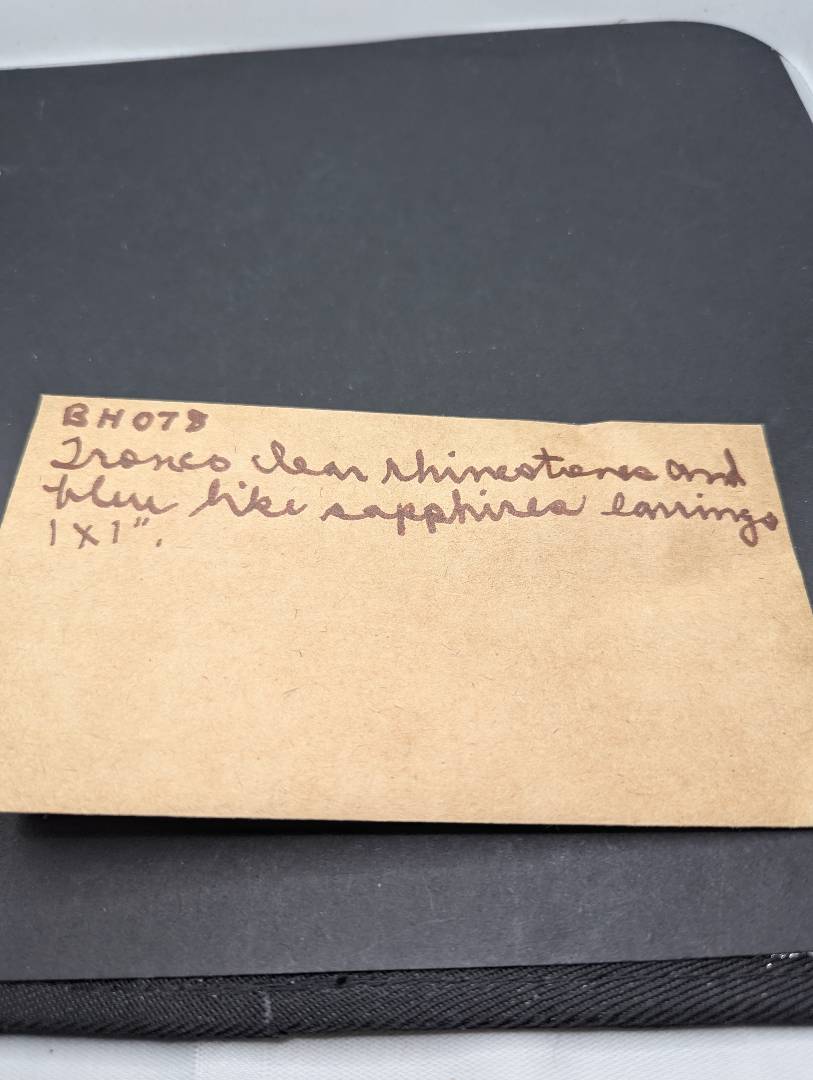 BH078
Ironco clear rhinestones and
blue like sapphires earrings
1 X 1".